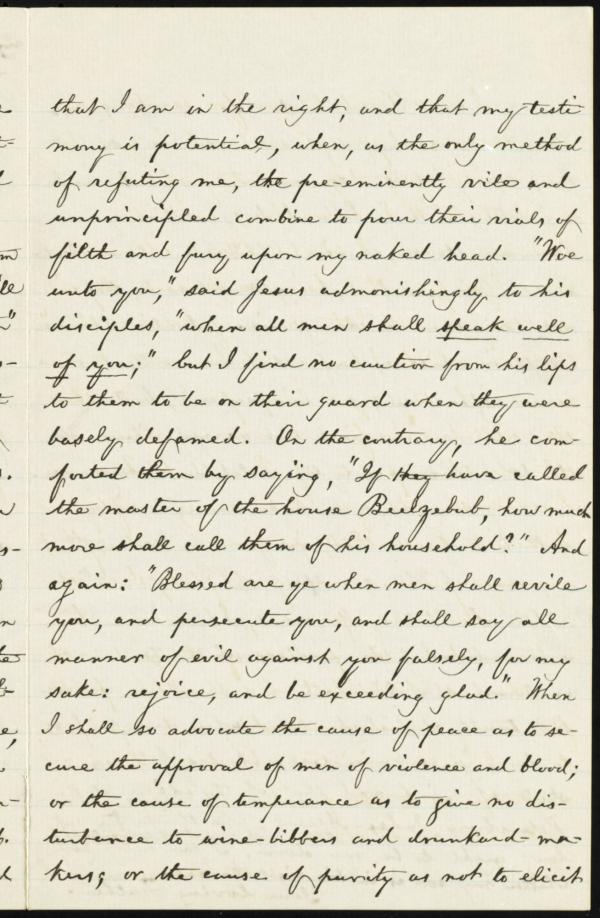 that I am in the right, and that my testi
mony is potential, when, as the only method
of refuting me, the pre-eminently vile and
unprincipled combine to pour their vials of
filth and fury upon my naked head. "Woe
unto you," said Jesus admonishingly to his
disciples, "when all men shall speak well
of you;" but I find no caution from his lips
to them to be on their guard when they were
basely defamed. On the contrary, he com-
forted them by saying, "If they have called
the master of the house Beelzebub, how much
more shall call them of his household?" And
again: "Blessed are ye when men shall revile
you, and persecute you, and shall say all
manner of evil against you falsely, for my
sake: rejoice, and be exceeding glad." When
I shall so advocate the cause of peace as to se-
cure the approval of men of violence and blood;
or the cause of temperance as to give no dis-
turbance to wine-bibbers and drunkard-ma-
kers; or the cause of purity as not to elicit